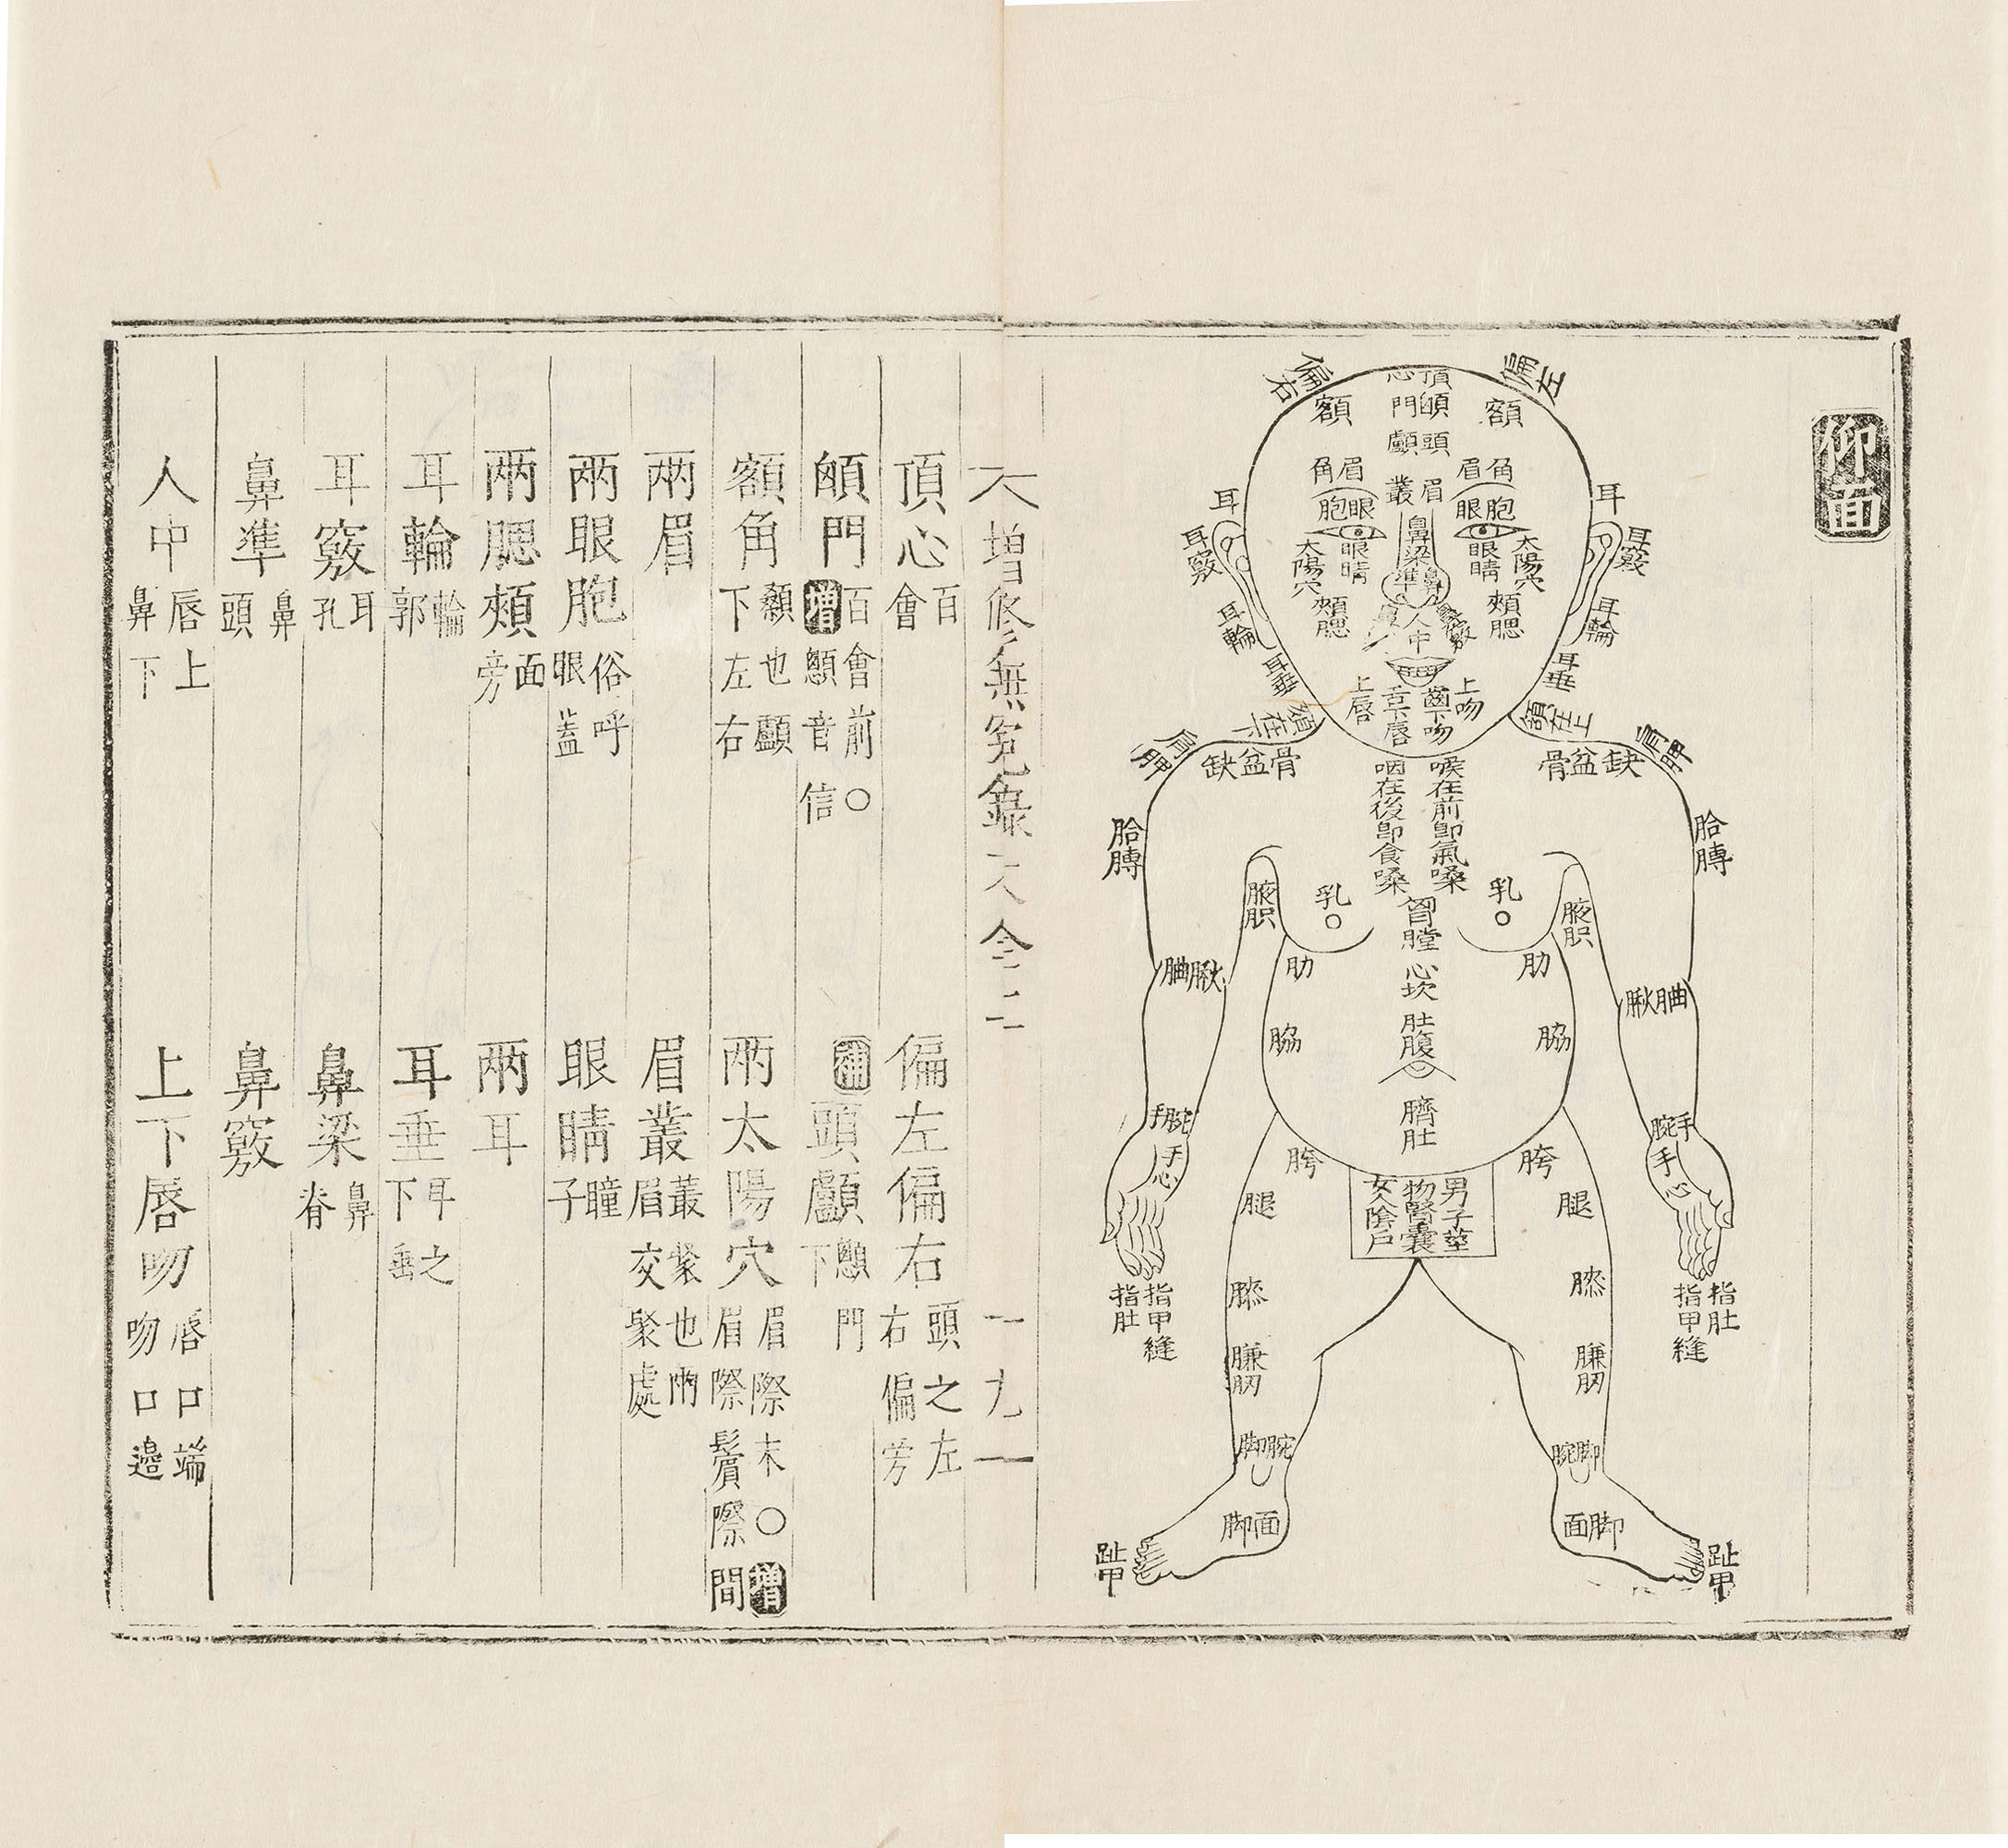 仰面
偏左
偏右
頂心
額
額
顖門
頭顱
眉角
眉角
眉叢
眼胞
眼胞
眼睛
眼睛
鼻梁
鼻準
太陽穴
太陽穴
耳
耳
耳竅
耳竅
耳輪
耳輪
耳垂
耳垂
頰腮
頰腮
鼻竅
人中
上吻
齒下吻
舌下唇
上唇
頷在上
頷在下
肩胛
肩胛
缺盆骨
缺盆骨
喉在前即氣嗓
咽在後即食嗓
胳膊
胳膊
腋胑
腋胑
乳
乳
胷膛
心坎
肚腹
臍肚
肋
肋
脇
脇
䐐𦛿
䐐𦛿
手腕
手腕
手心
手心
胯
胯
男子莖
物腎囊
女人陰戶
腿
腿
膝
膝
臁肕
臁肕
指肚
指甲縫
指甲縫
指肚
脚腕
脚腕
脚面
脚面
趾甲
趾甲
增修無冤錄大全二 一九一
頂心百會 偏左偏右頭之左右偏旁
顖門百會前○增顖音信 補頭顱顖門下
額角顙也顱下左右 兩太陽穴眉際末○增眉際鬢際間
兩眉 眉叢叢聚也兩眉交聚處
兩眼胞俗呼眼蓋 眼睛瞳子
兩腮頰面旁 兩耳
耳輪輪郭 耳垂耳之下垂
耳竅耳孔 鼻梁鼻脊
鼻準鼻頭 鼻竅
人中唇上鼻下 上下唇吻唇口端吻口邊